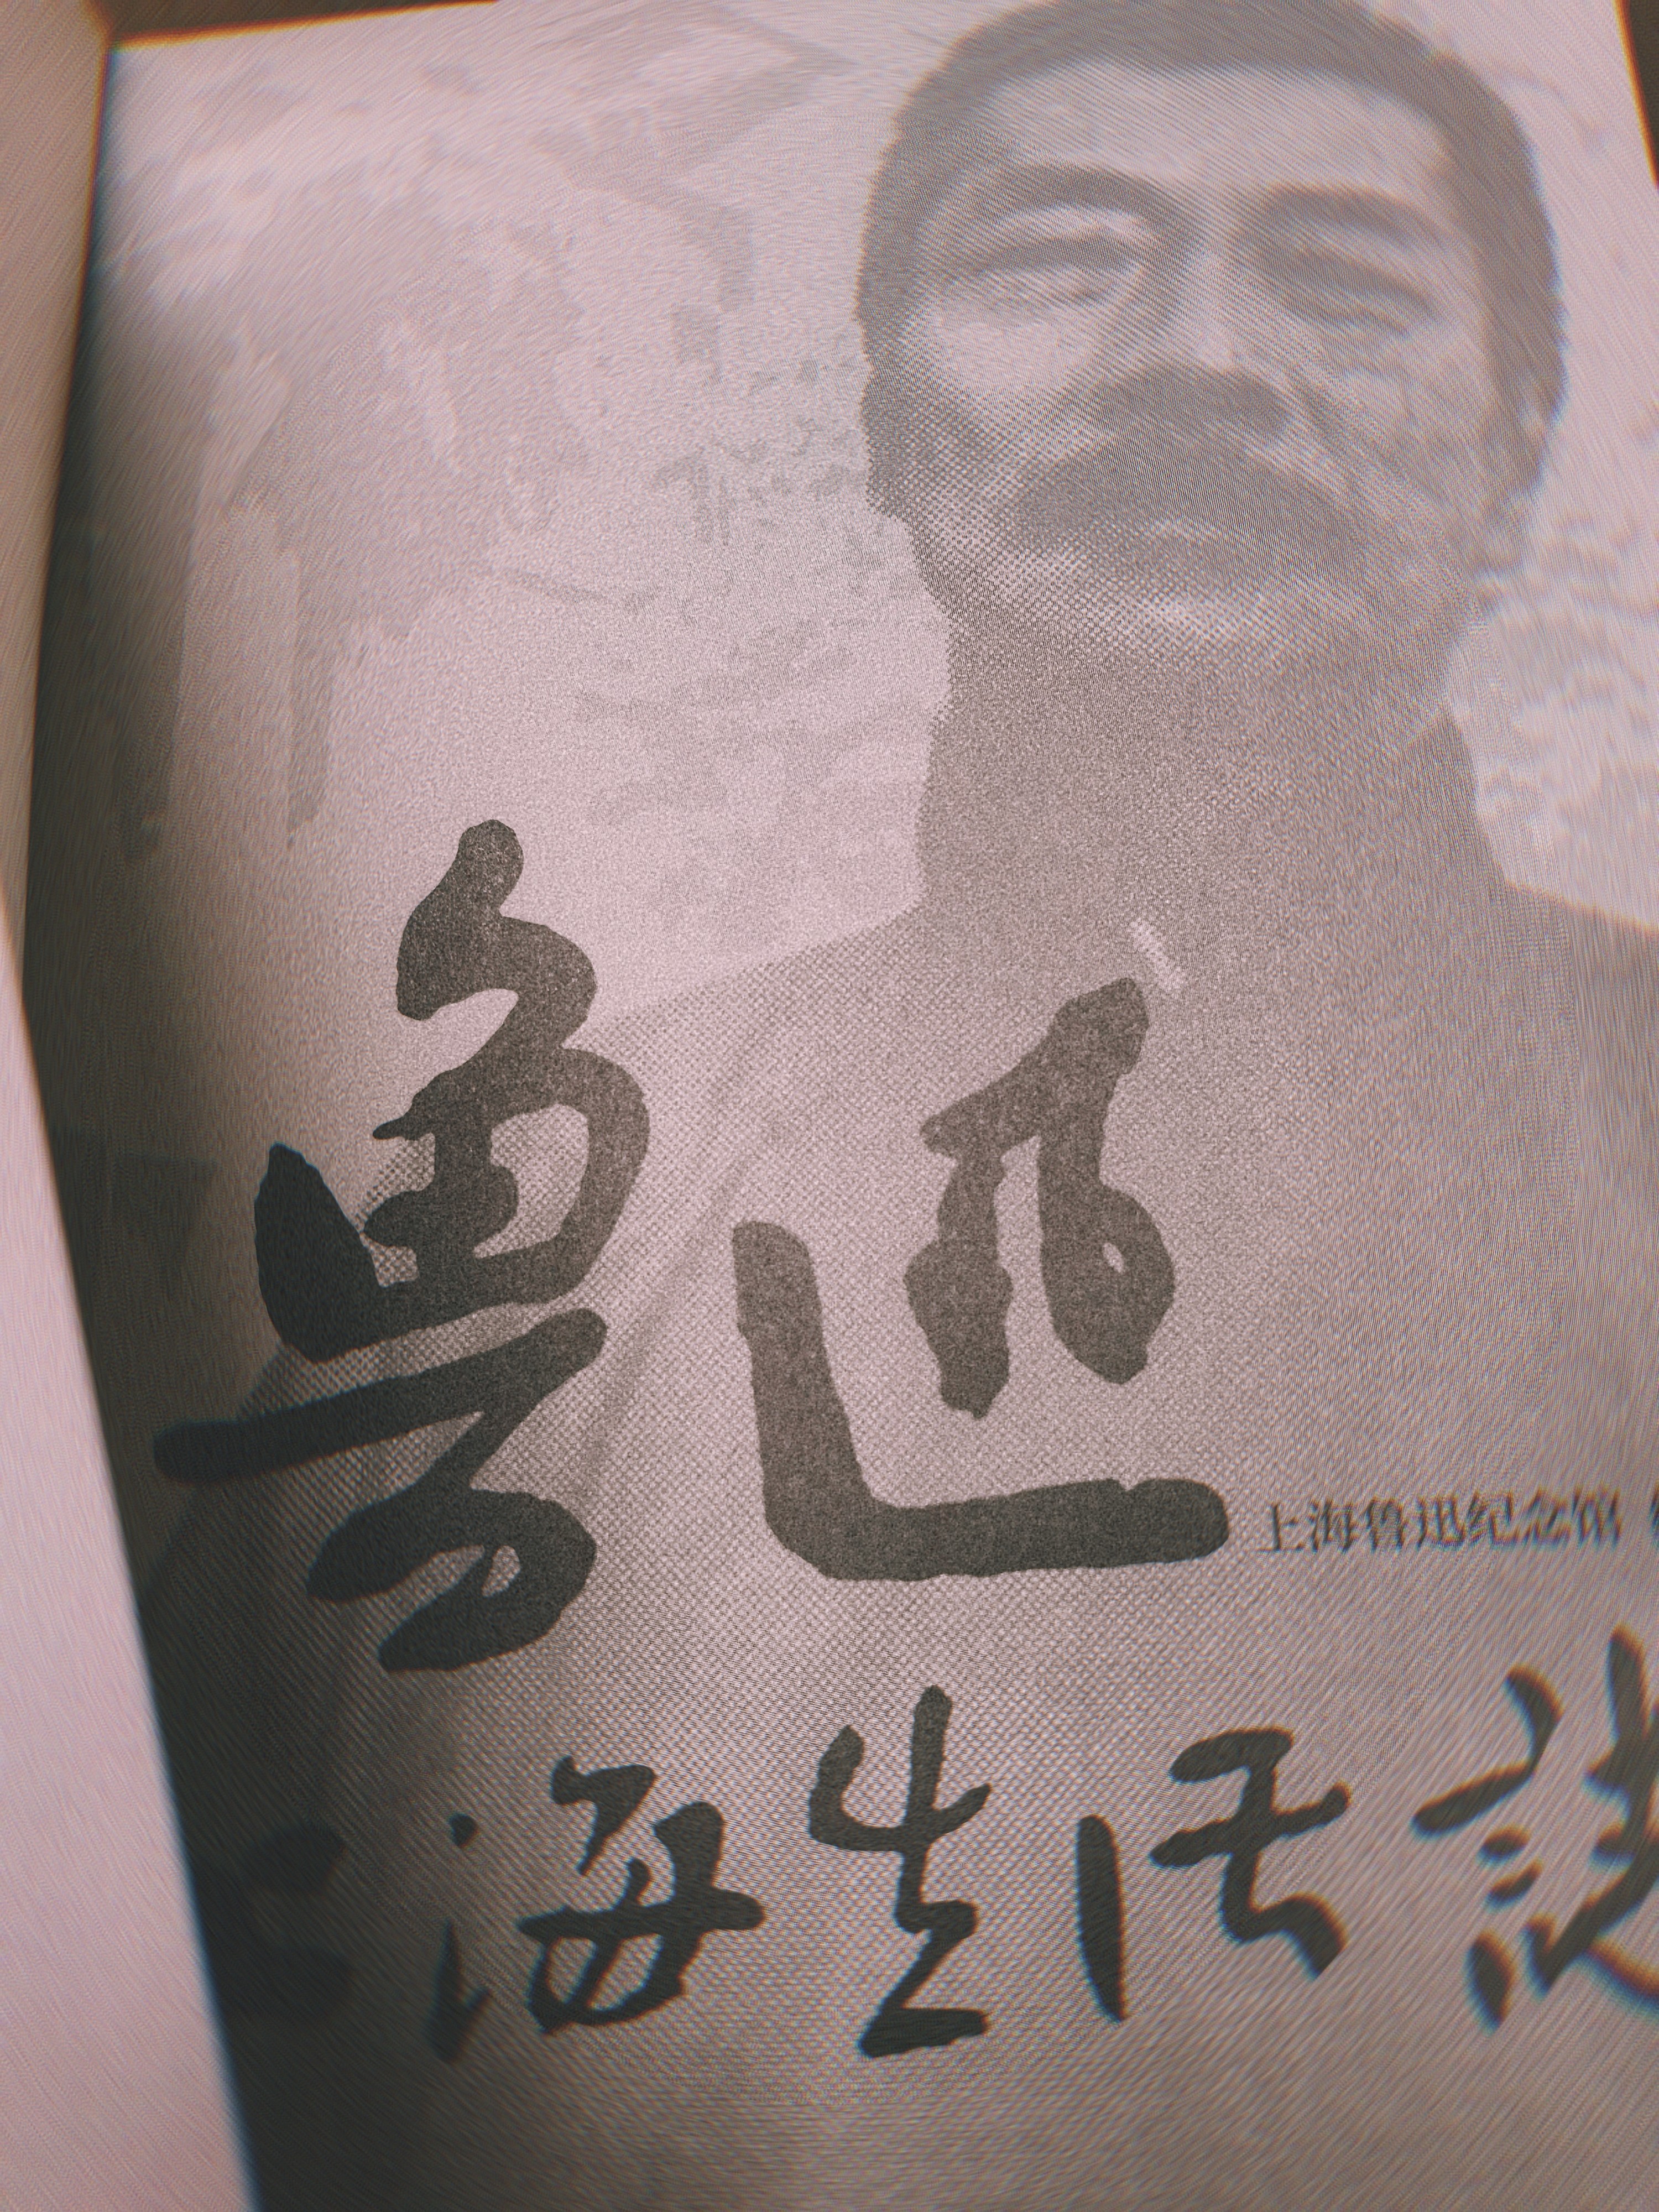 鲁迅
上海鲁迅纪念馆
海生活